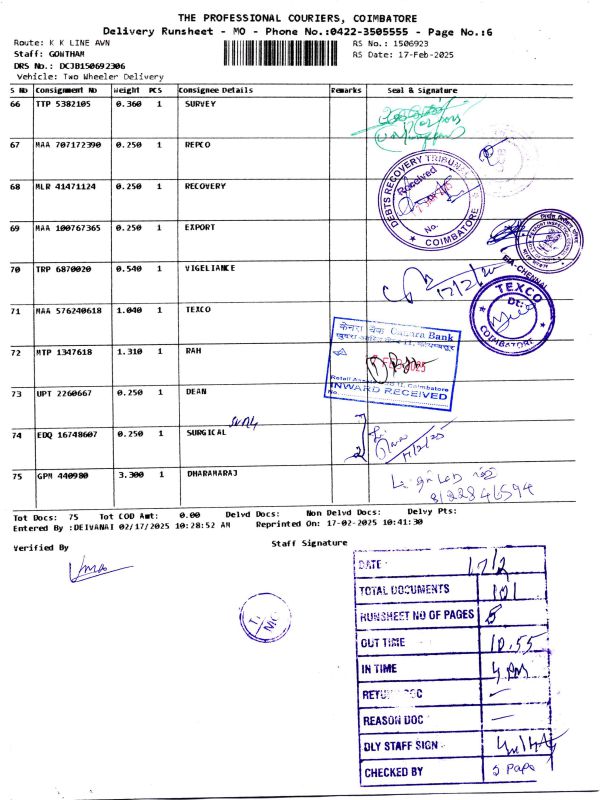 THE PROFESSIONAL COURIERS, COIMBATORE
Delivery Runsheet - MO - Phone No.:0422-3505555 - Page No.:6
Route: K K LINE AVN
RS No.: 1506923
Staff: GOWTHAM
RS Date: 17-Feb-2025
DRS No.: DCJB150692306
Vehicle: Two Wheeler Delivery
S No Consignment No Weight PCS Consignee Details Remarks Seal & Signature
66 TTP 5382105 0.360 1 SURVEY
67 MAA 707172390 0.250 1 REPCO
68 MLR 41471124 0.250 1 RECOVERY
DEBTS RECOVERY TRIBUNAL
Received
No.
COIMBATORE
69 MAA 100767365 0.250 1 EXPORT
EIA-CHENNAI
70 TRP 6870020 0.540 1 VIGELIANCE
17/2/25
71 MAA 576240618 1.040 1 TEXCO
TEXCO
Dt:
COIMBATORE
72 MTP 1347618 1.310 1 RAH
केनरा बैंक Canara Bank
FEB 2025
Coimbatore
INWARD RECEIVED
No.
73 UPT 2260667 0.250 1 DEAN
74 EDQ 16748607 0.250 1 SURGICAL
17/2/25
75 GPM 440980 3.300 1 DHARAMARAJ
Tot Docs: 75 Tot COD Amt: 0.00 Delvd Docs: Non Delvd Docs: Delvy Pts:
Entered By :DEIVANAI 02/17/2025 10:28:52 AM Reprinted On: 17-02-2025 10:41:30
Verified By
Staff Signature
DATE 17/2
TOTAL DOCUMENTS 101
RUNSHEET NO OF PAGES
OUT TIME 10.55
IN TIME 4 PM
RETURN DOC —
REASON DOC —
DLY STAFF SIGN
CHECKED BY